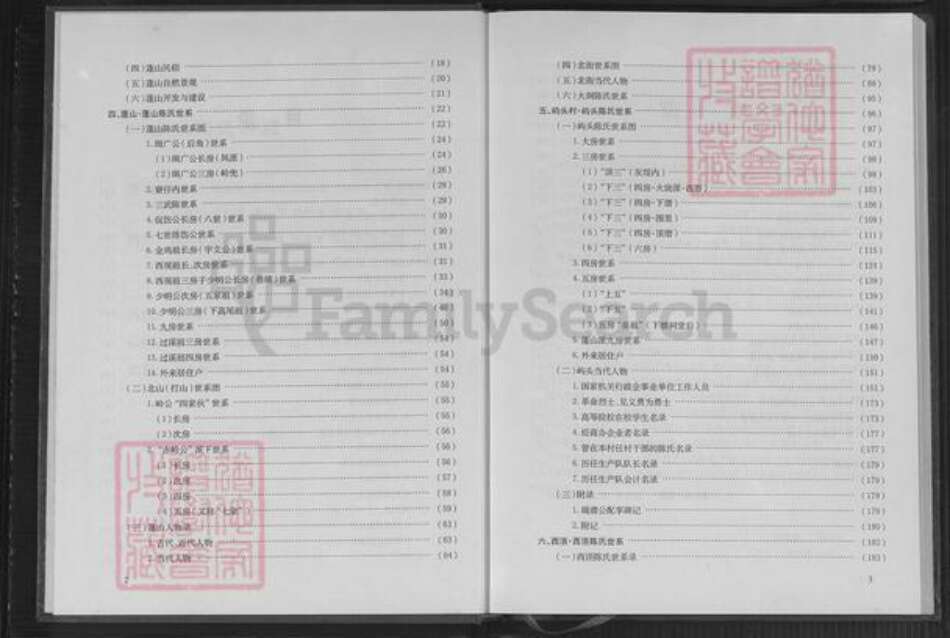 (四)蓬山民俗 (18)
(五)蓬山自然景观 (20)
(六)蓬山开发与建设 (21)
四、蓬山·蓬山陈氏世系 (22)
(一)蓬山陈氏世系图 (22)
1.阔广公(后角)世系 (24)
(1)阔广公长房 (24)
(2)阔广公三房 (26)
2.寮仔内世系 (28)
3.三武陈世系 (29)
4.侃岱公长房(八世)世系 (30)
5.七世 公世系 (30)
6.金鸡祖长房(宇文公)世系 (31)
7.西埔祖长、次房世系 (31)
8.西埔祖三房子少明公长房 世系 (33)
9.少明公次房(五家祖)世系 (34)
10.少明公三房(下高尾祖)世系 (40)
11.九房世系 (50)
12.过溪祖三房世系 (54)
13.过溪祖四房世系 (54)
14.外来居住户 (54)
(二)北山(打山)世系图 (55)
1.岭公“四家伙”世系 (55)
(1)长房 (55)
(2)次房 (56)
2. 派下世系 (56)
(1)长房 (56)
(2)次房 (57)
(3)四房 (58)
(4)五房(又称“七家” (59)
(三)蓬山人物录 (63)
1.古代、近代人物 (63)
2.当代人物 (64)
2
(四)北街世系图 (79)
(五)北街当代人物
(六)大洞陈氏世系 (95)
五、屿头村·屿头陈氏世系 (96)
(一)屿头陈氏世系图 (97)
1.大房世系 (97)
2.三房世系 (98)
(1)“顶三”(灰埕内) (98)
(2)“下三”(四房· (103)
(3)“下三”(四房·下厝) (106)
(4)“下三”(四房·围里) (109)
(5)“下三”(四房·顶厝) (111)
(6)“下三”(六房) (115)
3.四房世系 (131)
4.五房世系 (139)
(1)“上五” (139)
(2)“下五” (141)
(3)五房 (146)
5.蓬山派九房世系 (147)
6.外来居住户 (150)
(二)屿头当代人物 (151)
1.国家机关行政企事业单位工作人员 (151)
2.革命烈士、见义勇为勇士 (173)
3.高等院校在校学生名录 (173)
4.经商办企业者名录 (177)
5.曾在本村任村干部的陈氏名录 (177)
6.历任生产队队长名录 (179)
7.历任生产队会计名录 (179)
(三)附录 (179)
1. 公配享碑记 (179)
2.附记 (180)
六、西顶·西顶陈氏世系 (182)
(一)西顶陈氏世系录 (183)
3
FamilySearch